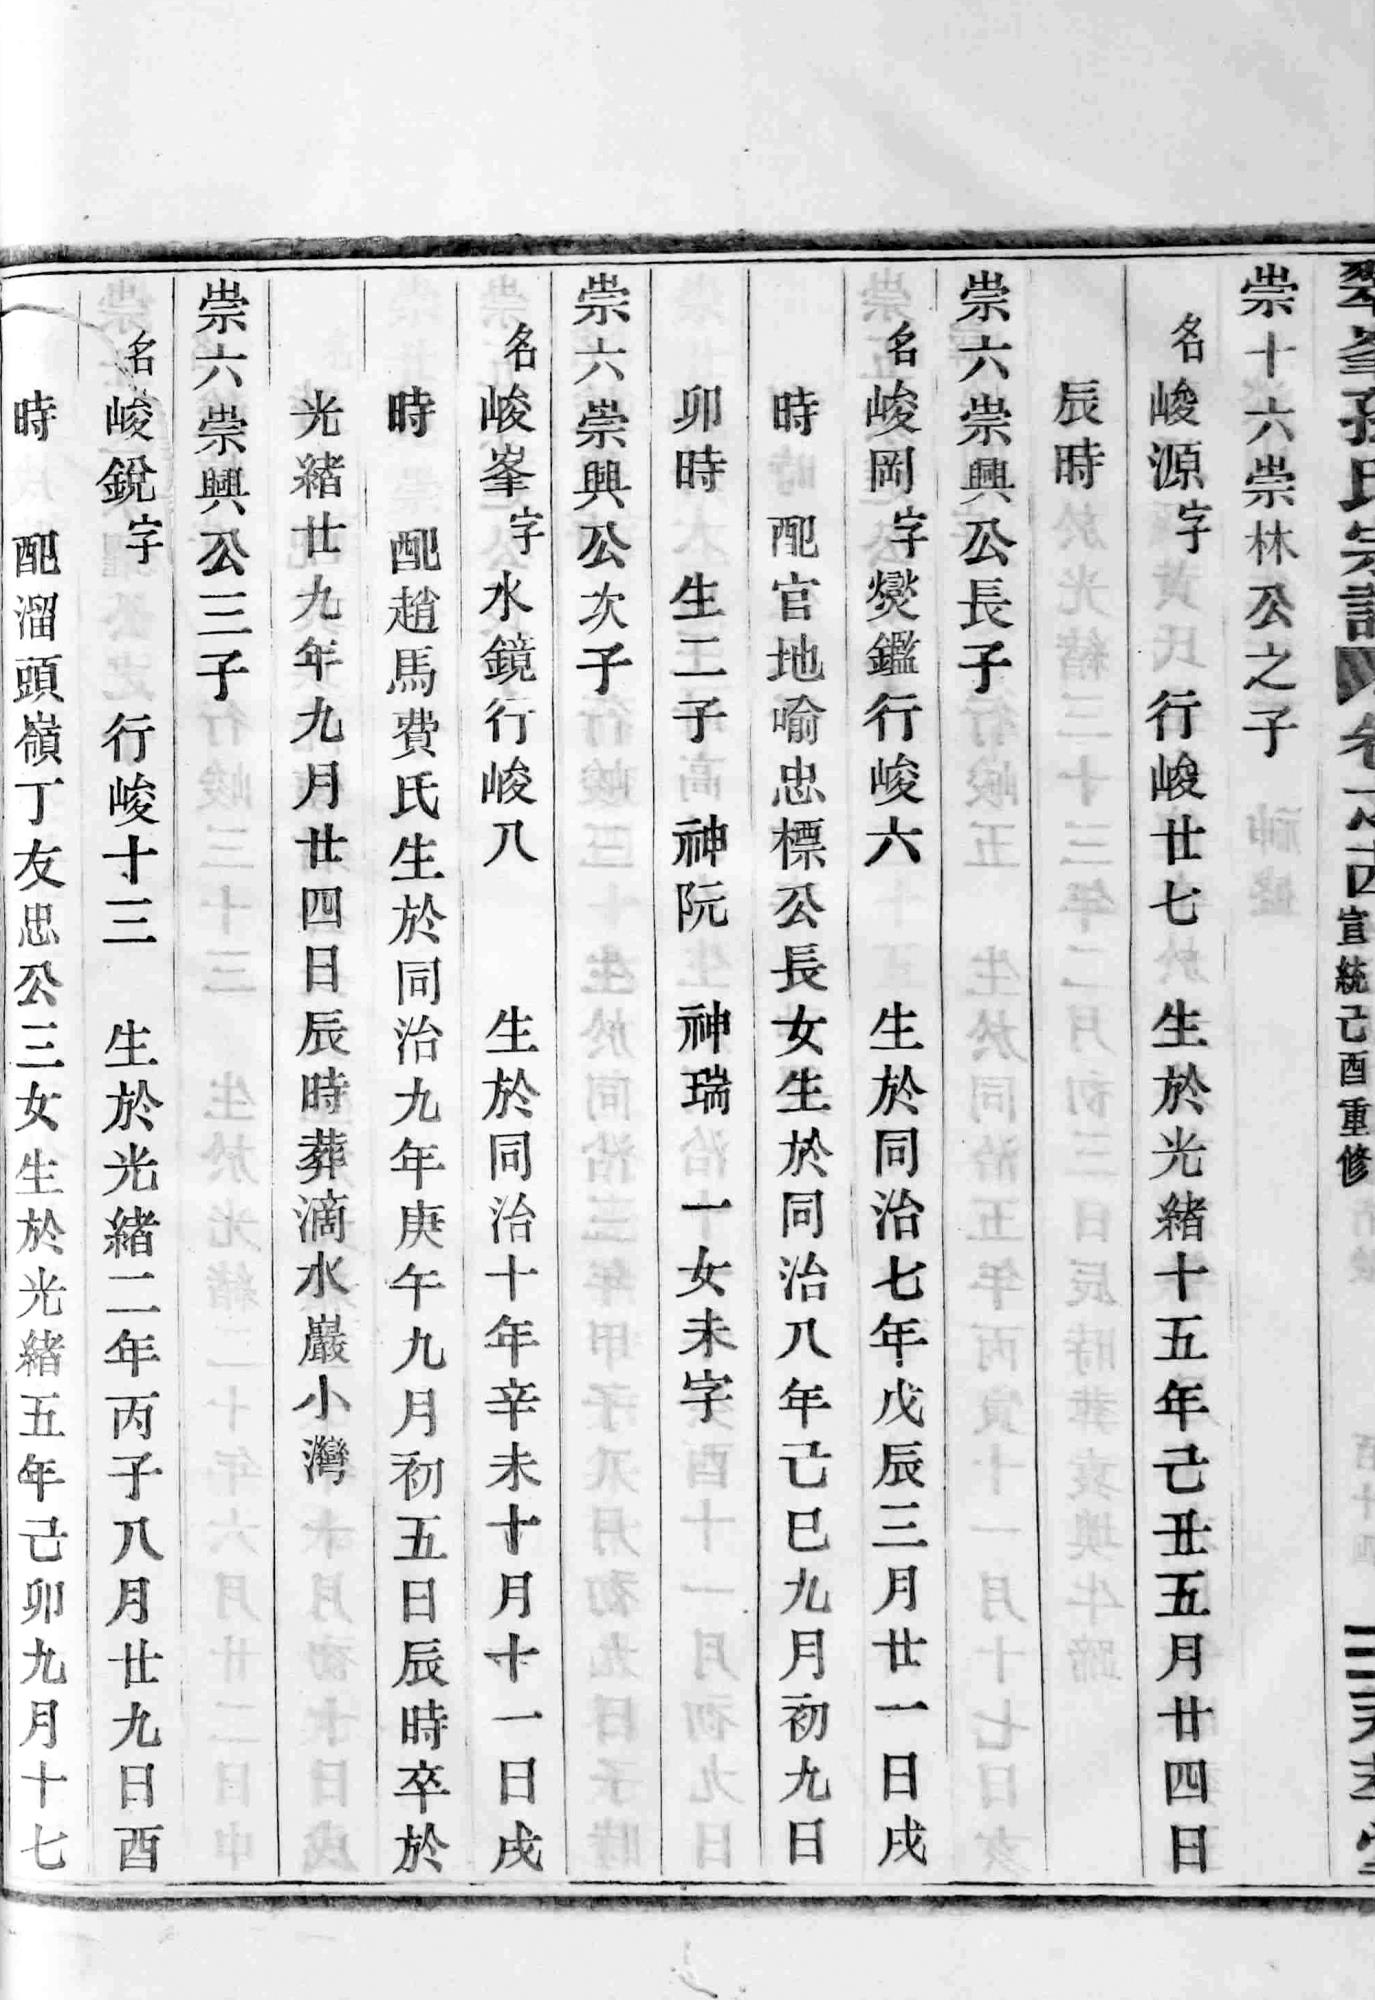 翠峯孫氏宗譜 卷之四 宣統己酉重修
崇十六崇林公之子
名峻源字 行峻廿七 生於光緒十五年己丑五月廿四日
辰時
崇六崇興公長子
名峻岡字爕鑑行峻六 生於同治七年戊辰三月廿一日戌
時 配官地喻忠標公長女生於同治八年己巳九月初九日
卯時 生二子 神阮 神瑞 一女未字
崇六崇興公次子
名峻峯字水鏡行峻八 生於同治十年辛未十月十一日戌
時 配趙馬費氏生於同治九年庚午九月初五日辰時卒於
光緒廿九年九月廿四日辰時葬滴水巖小灣
崇六崇興公三子
名峻銳字 行峻十三 生於光緒二年丙子八月廿九日酉
時 配溜頭嶺丁友忠公三女生於光緒五年己卯九月十七